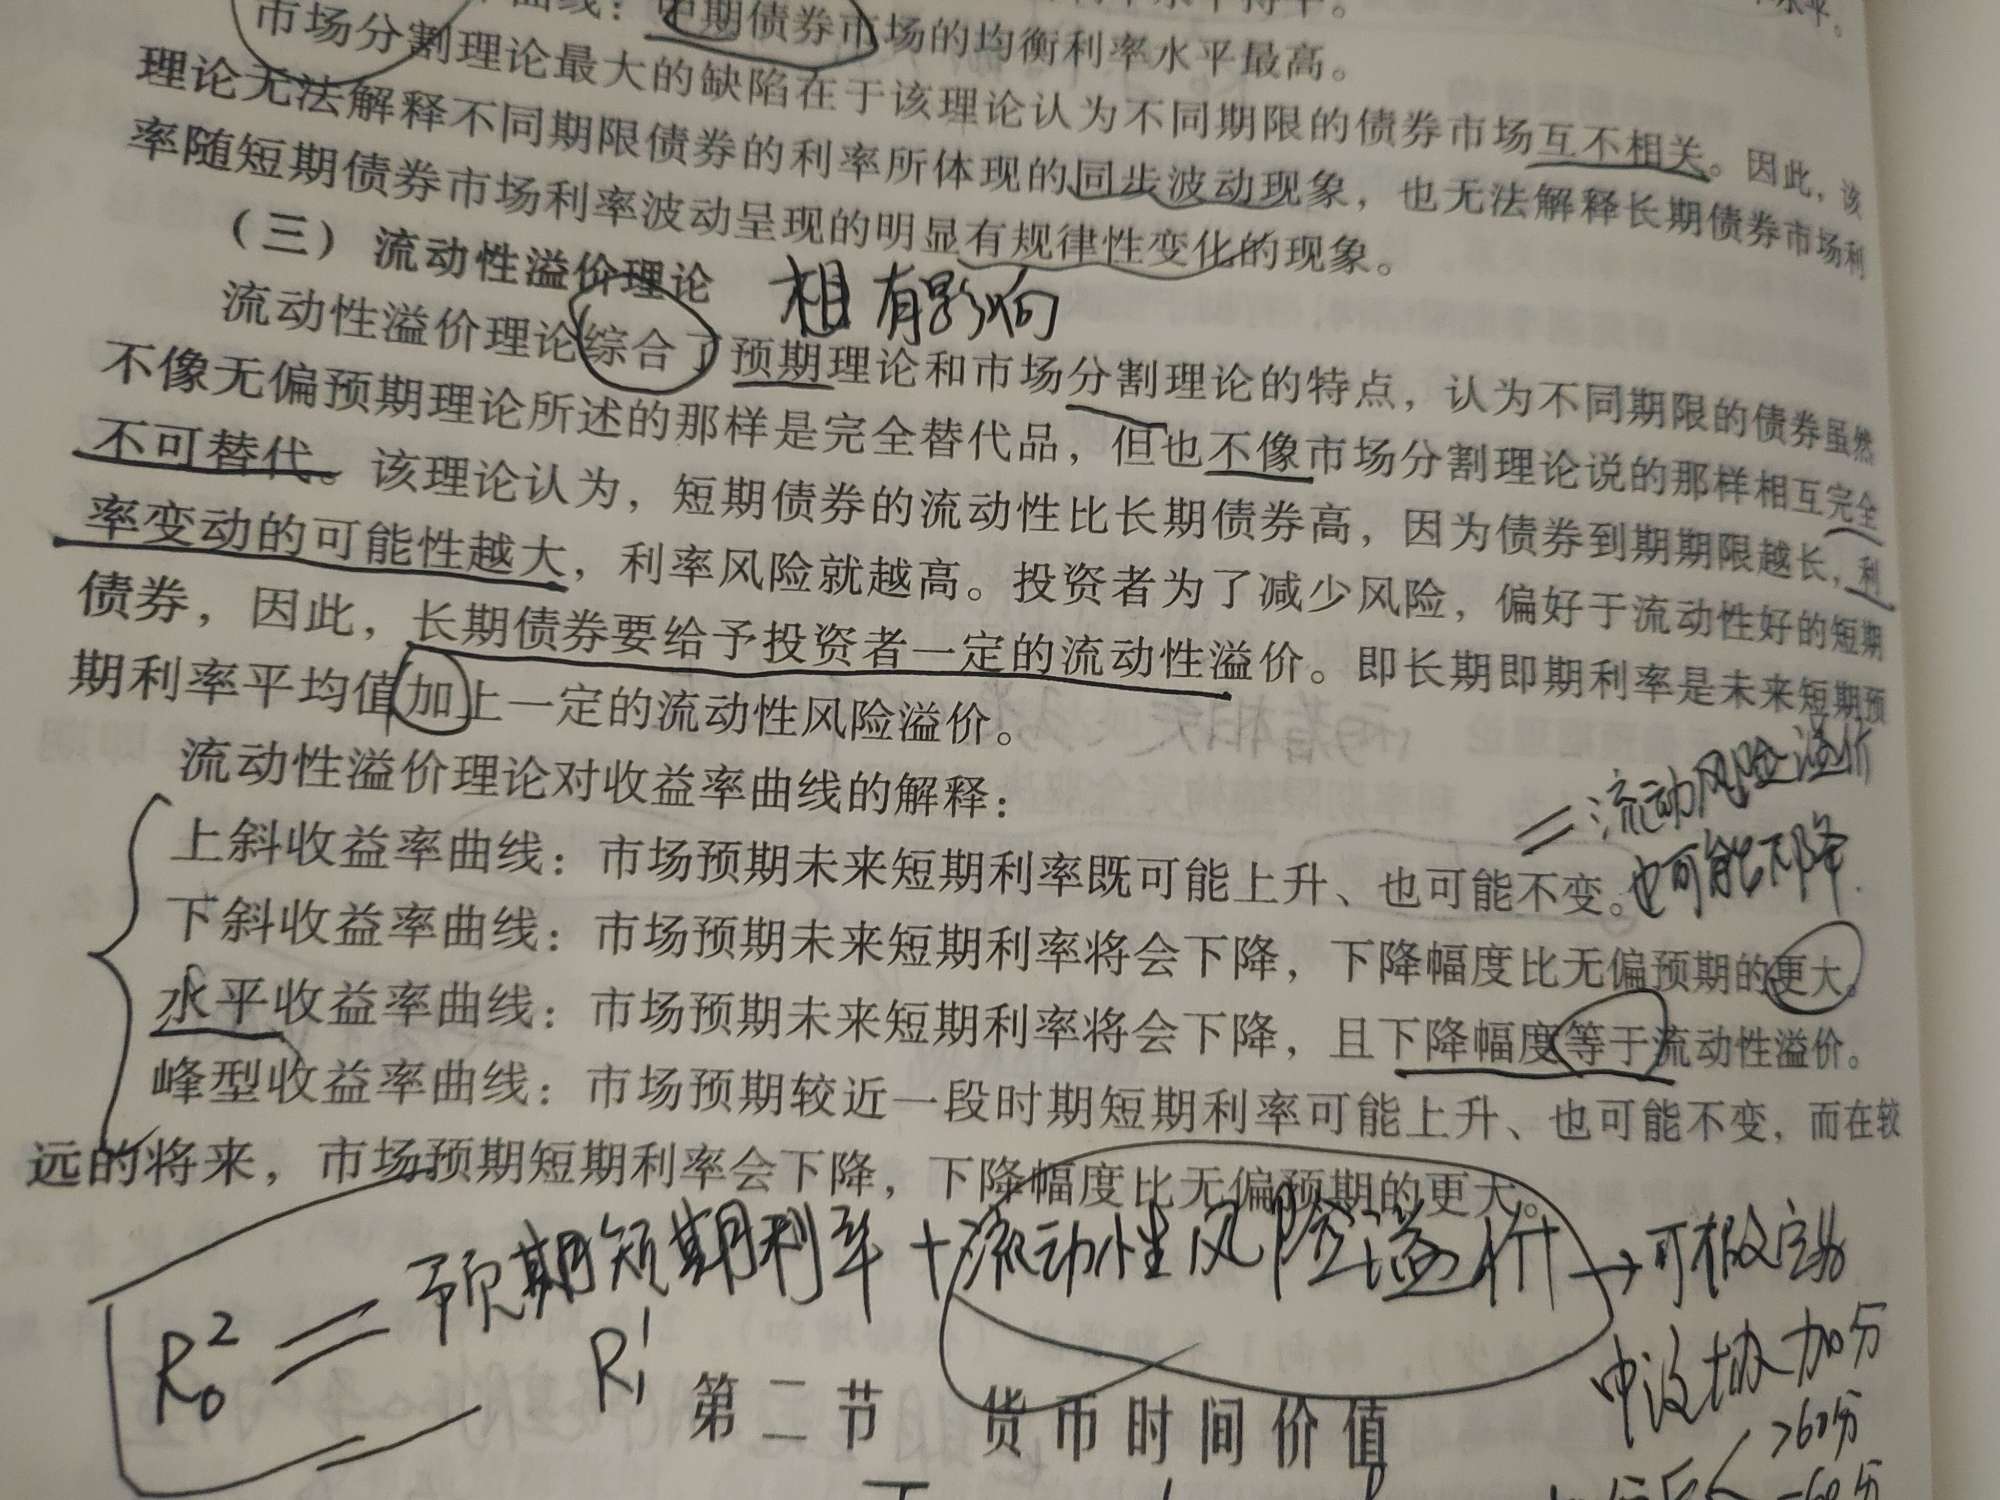 曲线：中期债券市场的均衡利率水平最高。
水平。
市场分割理论最大的缺陷在于该理论认为不同期限的债券市场互不相关。因此，该
理论无法解释不同期限债券的利率所体现的同步波动现象，也无法解释长期债券市场利
率随短期债券市场利率波动呈现的明显有规律性变化的现象。
（三）流动性溢价理论
相 有影响
流动性溢价理论综合了预期理论和市场分割理论的特点，认为不同期限的债券虽然
不像无偏预期理论所述的那样是完全替代品，但也不像市场分割理论说的那样相互完全
不可替代。该理论认为，短期债券的流动性比长期债券高，因为债券到期期限越长，利
率变动的可能性越大，利率风险就越高。投资者为了减少风险，偏好于流动性好的短期
债券，因此，长期债券要给予投资者一定的流动性溢价。即长期即期利率是未来短期预
期利率平均值加上一定的流动性风险溢价。
流动性溢价理论对收益率曲线的解释：
=流动风险溢价
上斜收益率曲线：市场预期未来短期利率既可能上升、也可能不变。
也可能下降
下斜收益率曲线：市场预期未来短期利率将会下降，下降幅度比无偏预期的更大。
水平收益率曲线：市场预期未来短期利率将会下降，且下降幅度等于流动性溢价。
峰型收益率曲线：市场预期较近一段时期短期利率可能上升、也可能不变，而在较
远的将来，市场预期短期利率会下降，下降幅度比无偏预期的更大。
R₀² = 预期短期利率 + 流动性风险溢价 →
R₁¹
加分
第二节 货币时间价值
>60分